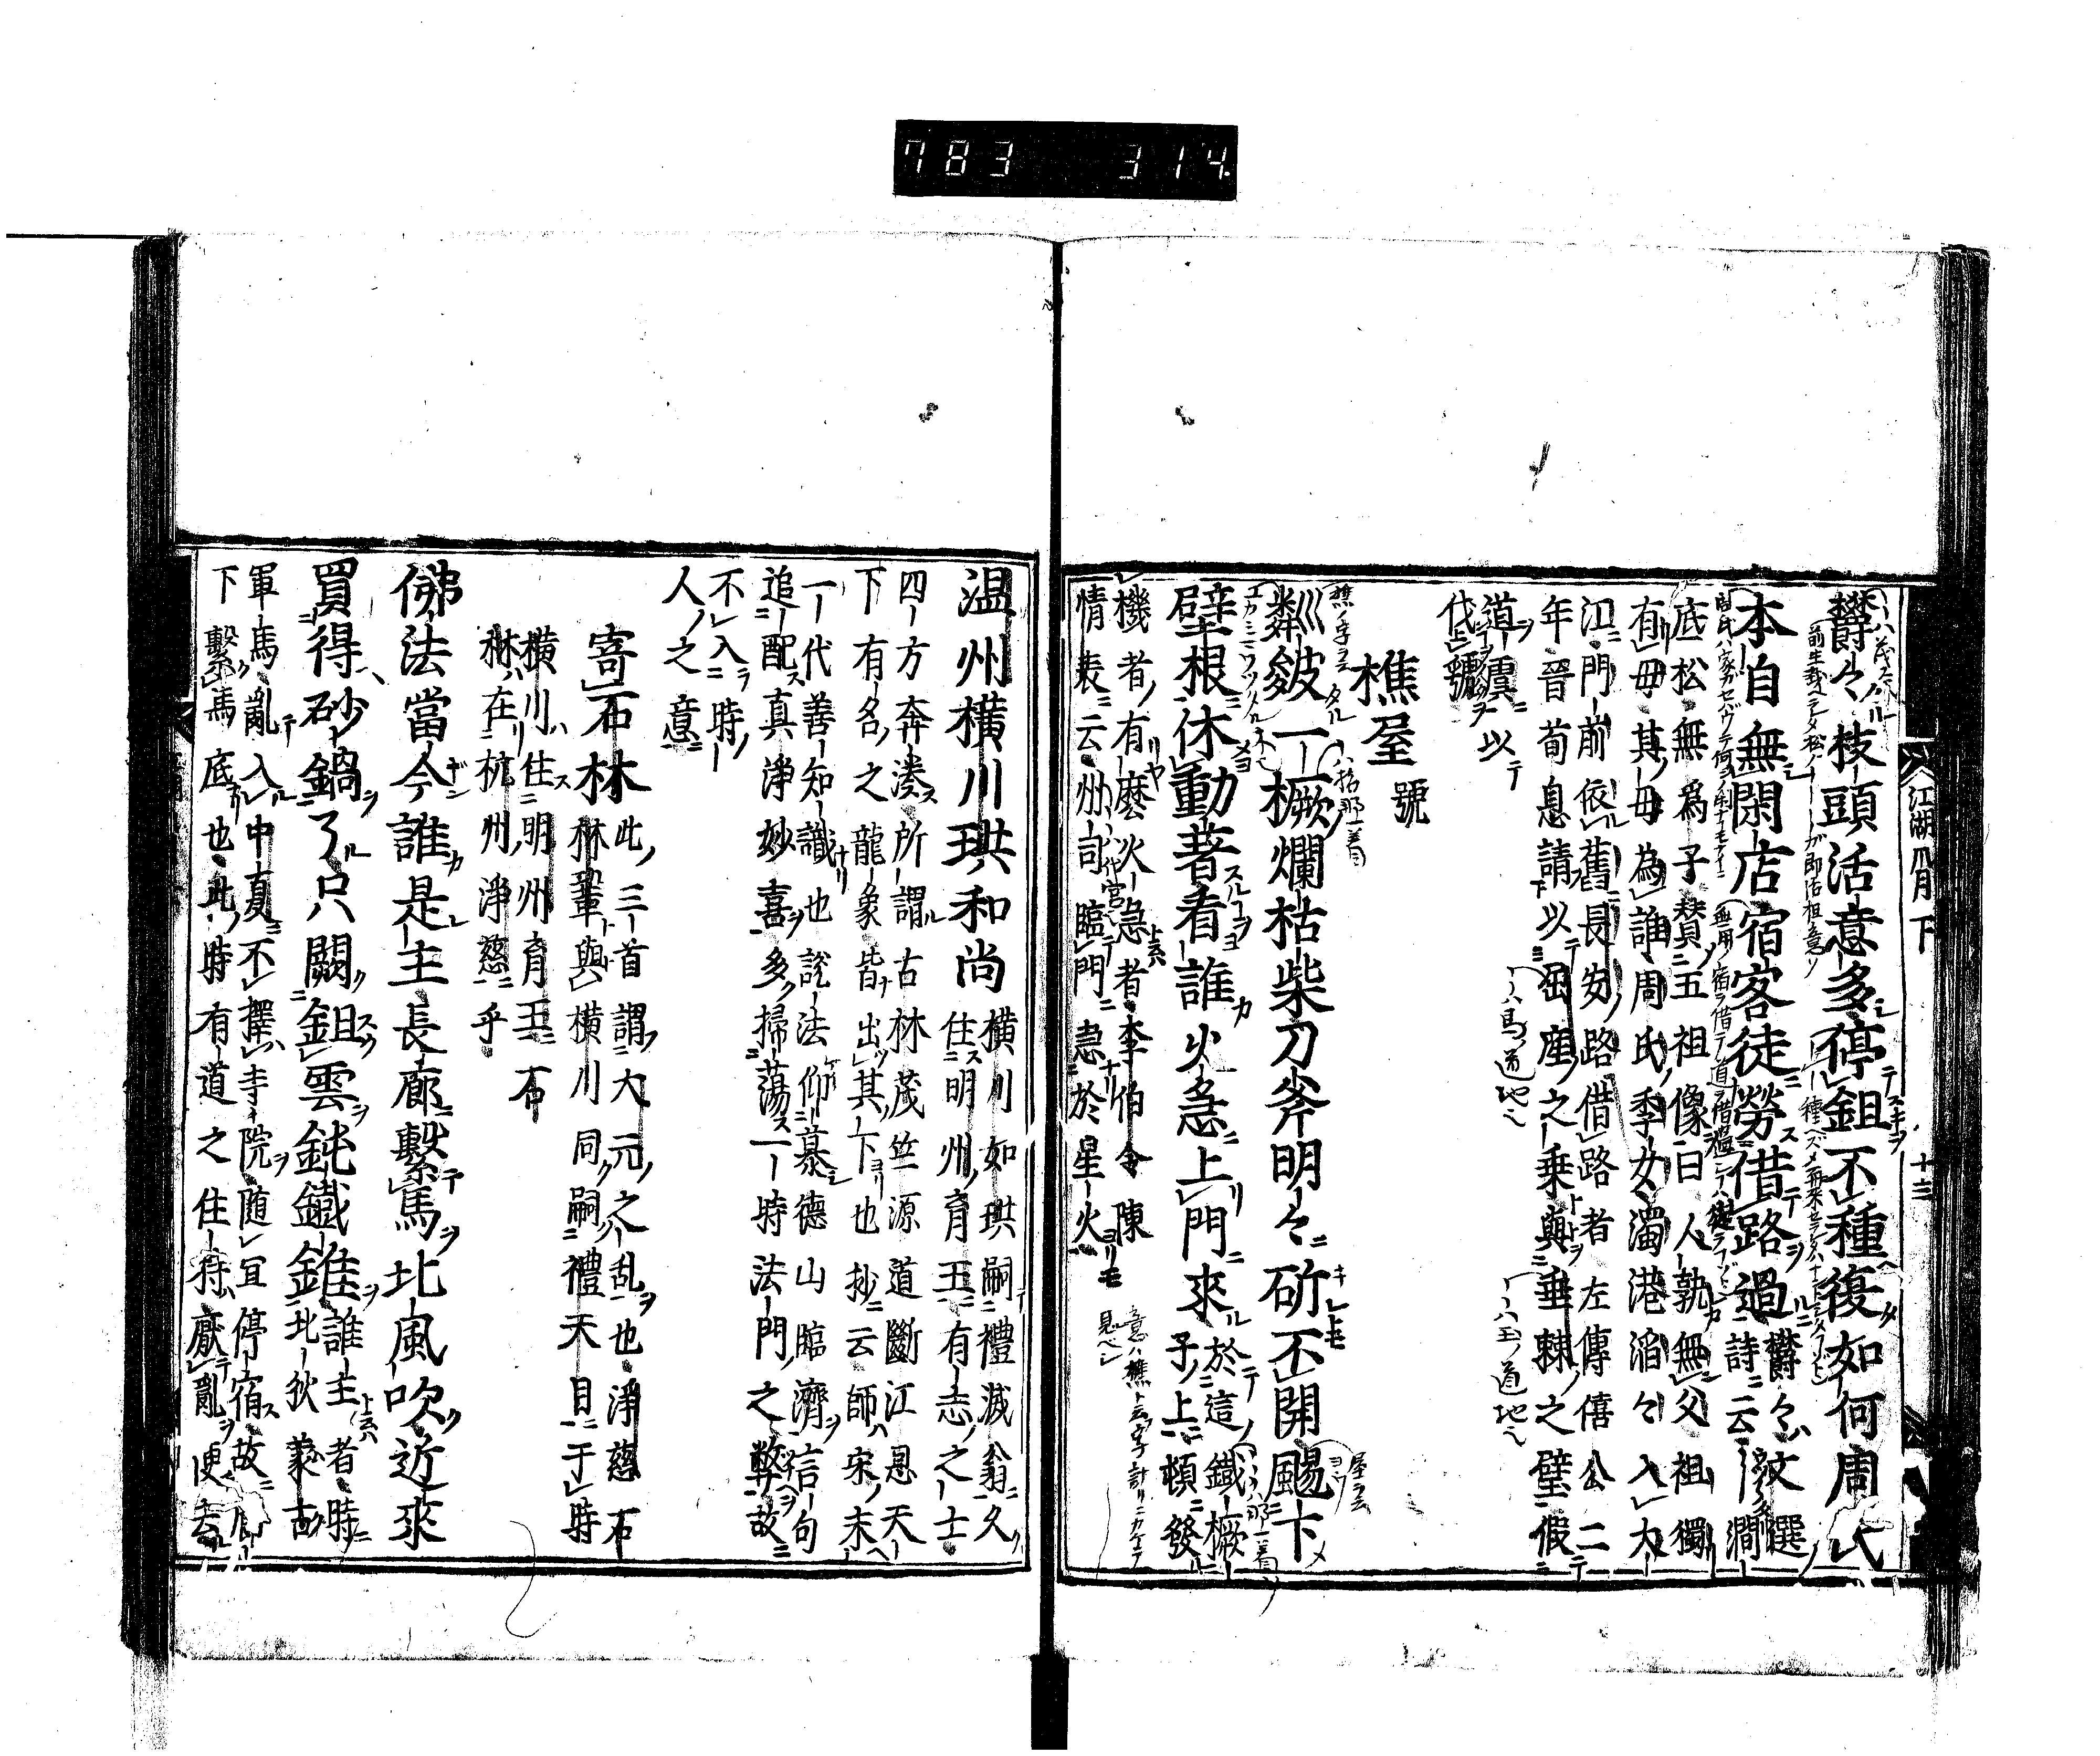 783 314
江湖 下 十三
欝々枝頭活意多停鉏不種復如何周氏
本自無閑店宿客徒勞借路過
欝々文選
詩云 澗
底松無為子賛五祖像曰人孰無父祖獨
有母其母為誰周氏季女濁港滔々入大
江門前依舊長安路借路者左傳僖公二
年晉荀息請以屈産之乗與垂棘之璧假
道虞以
伐虢
樵屋 號
粼皴一橛爛枯柴刀斧明々斫不開颺下
壁根休動著看誰火急上門來
於這鐵橛
子上頓發
機者有麼火急者李伯令陳
情表云州司臨門急於星火
温州横川珙和尚
横川如珙嗣禮滅翁久
住明州育王有志之士
四方奔湊所謂古林茂竺源道斷江恩天
下有名之龍象皆出其下也抄云師宋末
一代善知識也説法仰慕德山臨濟言句
追配真淨妙喜多掃蕩一時法門之弊故
不入時
人之意
寄石林
此三首謂大元之乱也淨慈石
林鞏與横川同嗣禮天目于時
横川住明州育王石
林在杭州淨慈乎
佛法當今誰是主長廊繫馬北風吹近來
買得砂鍋了只闕鉏雲鈍鐵錐
誰主者時
北狄蒙古
軍馬亂入中夏不擇寺院隨宜停宿故
下繫馬底也此時有道之住持厭亂便去